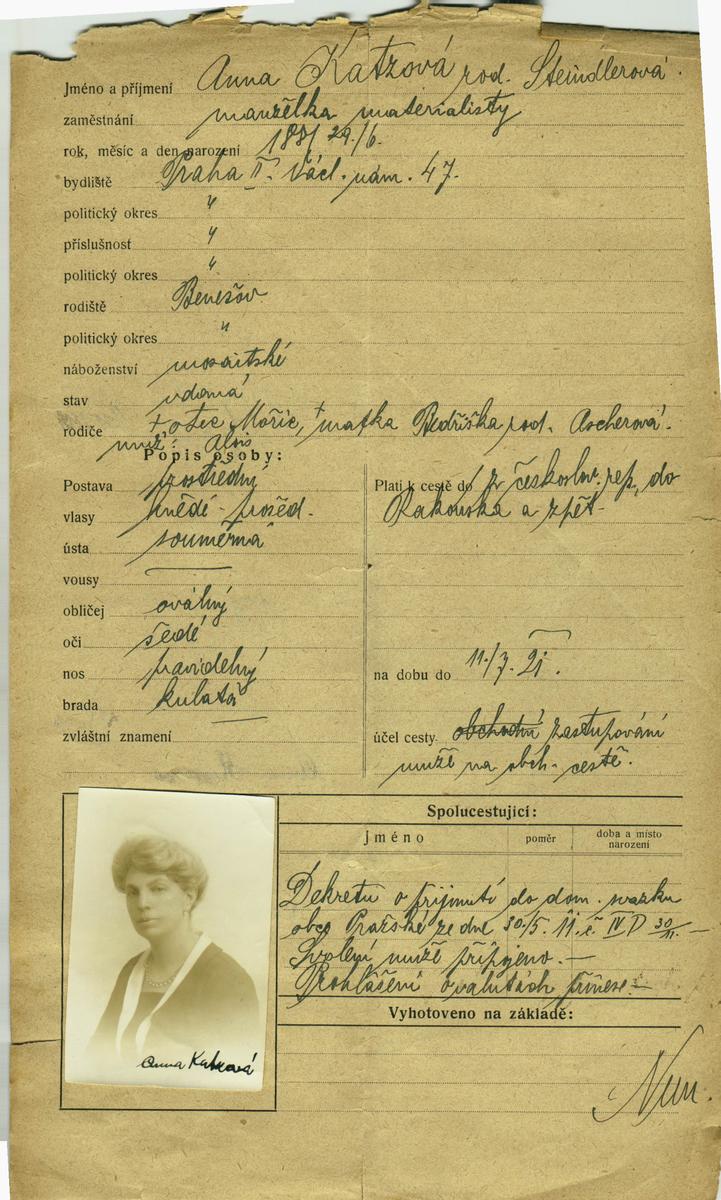 Jméno a příjmení Anna Katzová rod. Steindlerová.
zaměstnání manželka materialisty
rok, měsíc a den narození 1881 29./6.
bydliště Praha II. Václ. nám. 47.
politický okres "
příslušnost "
politický okres "
rodiště Benešov
politický okres "
náboženství mosaitské
stav vdaná
rodiče + otec Mořic, + matka Bedřiška rod. Ascherová.
muž: Alois
Popis osoby:
Postava prostřední
vlasy hnědé - prošed.
ústa souměrná
vousy
obličej oválný
oči šedé
nos pravidelný
brada kulatá
zvláštní znamení
Platí k cestě do z českoslov. rep. do
Rakouska a zpět.
na dobu do 11./7. 21.
účel cesty obchodní zastupování
muže na obch. cestě.
Spolucestující:
jméno poměr doba a místo narození
Dekretu o přijmutí do dom. svazku
obce Pražské ze dne 30./5. 11. č. IV D 30/11.
Svolení muže připojeno.—
Prohlášení o valutách přinese.—
Vyhotoveno na základě:
Anna Katzová